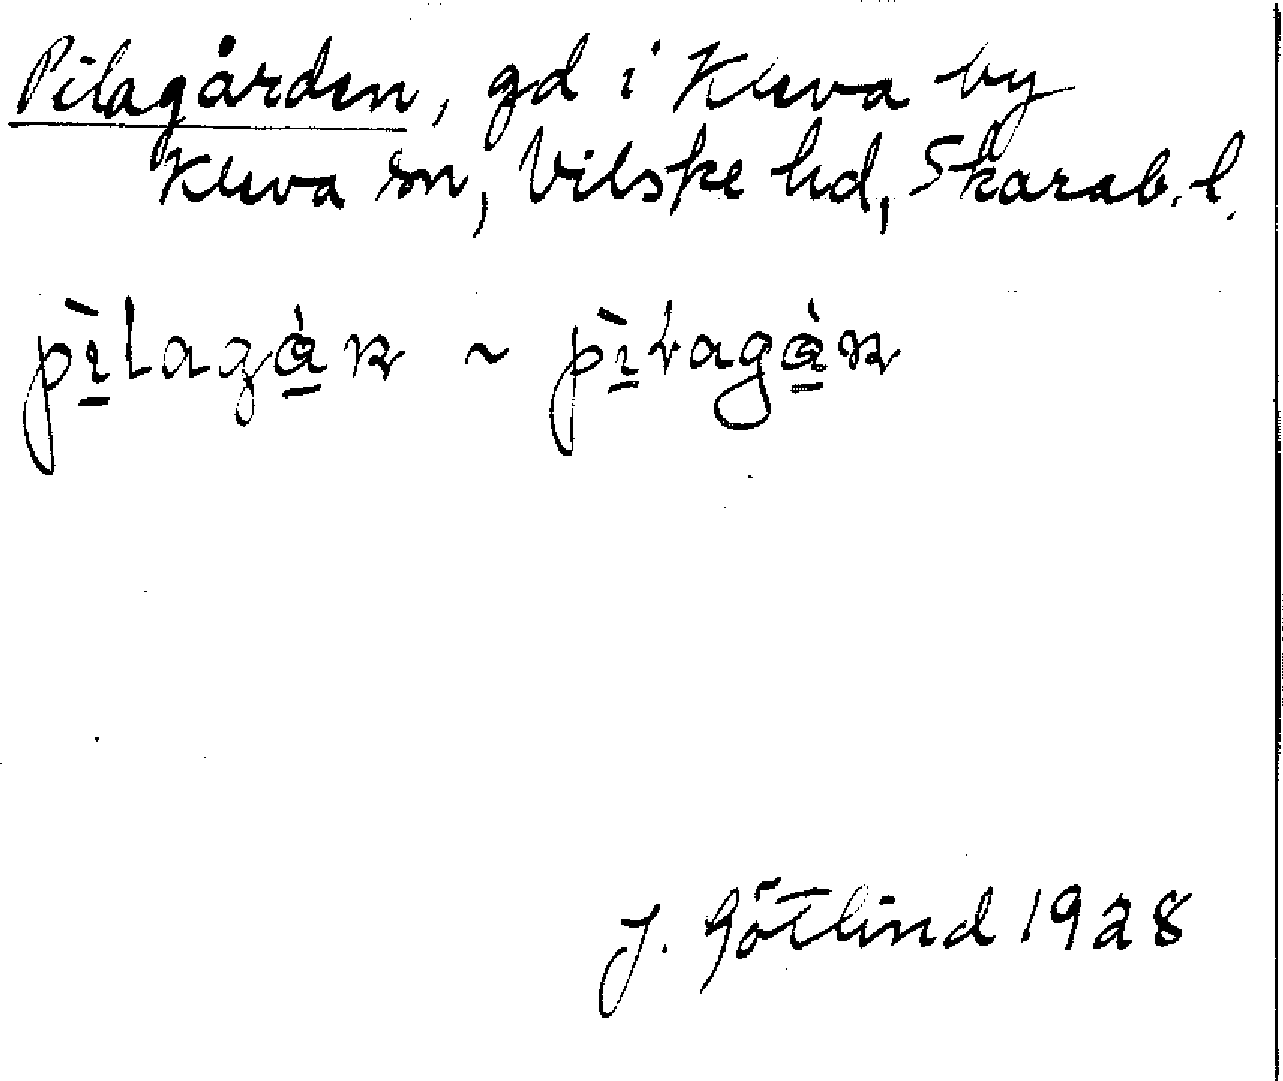 Pilagården, gd i Kleva by
Kleva sn, Vilske hd, Skarab. l.
pìlagȧ̱n ~ pìłagȧ̱n
J. Götlind 1928